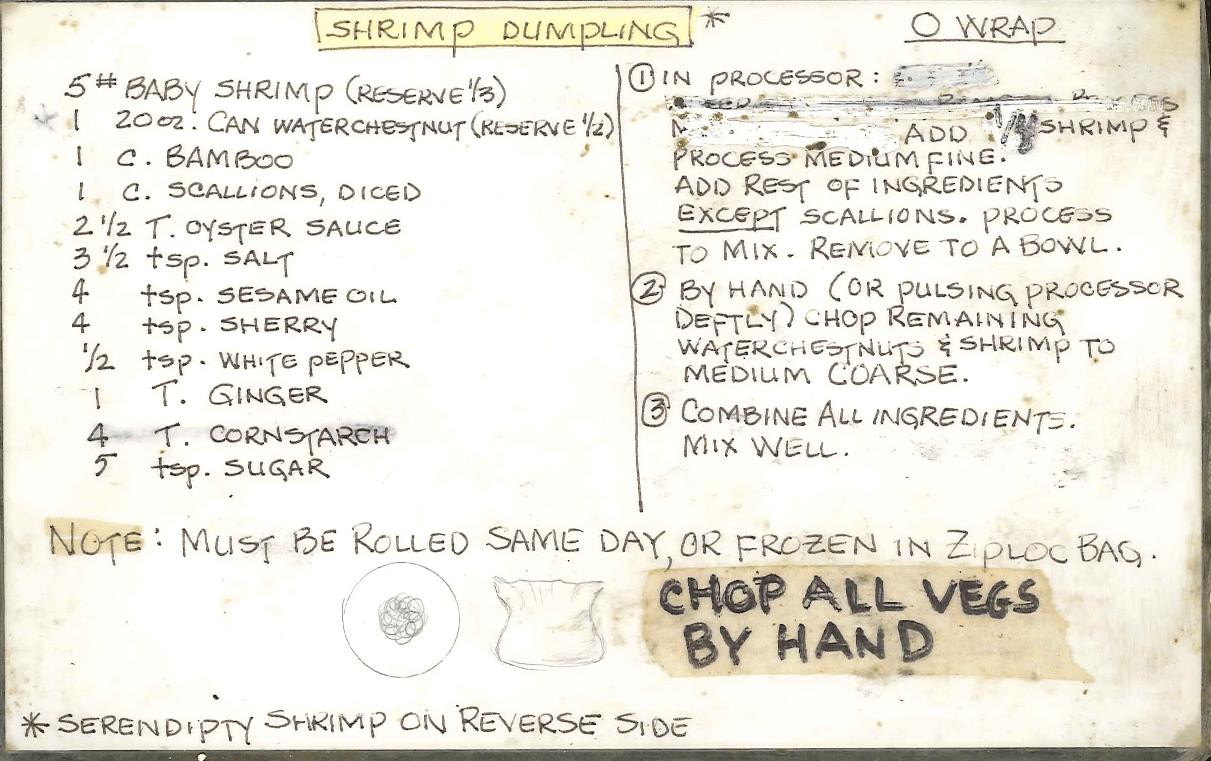 SHRIMP DUMPLING *
O WRAP
5# BABY SHRIMP (RESERVE 1/3)
1 20oz. CAN WATERCHESTNUT (RESERVE 1/2)
1 C. BAMBOO
1 C. SCALLIONS, DICED
2 1/2 T. OYSTER SAUCE
3 1/2 tsp. SALT
4 tsp. SESAME OIL
4 tsp. SHERRY
1/2 tsp. WHITE PEPPER
1 T. GINGER
4 T. CORNSTARCH
5 tsp. SUGAR
① IN PROCESSOR:
ADD SHRIMP &
PROCESS MEDIUM FINE.
ADD REST OF INGREDIENTS
EXCEPT SCALLIONS. PROCESS
TO MIX. REMOVE TO A BOWL.
② BY HAND (OR PULSING PROCESSOR
DEFTLY) CHOP REMAINING
WATERCHESTNUTS & SHRIMP TO
MEDIUM COARSE.
③ COMBINE ALL INGREDIENTS.
MIX WELL.
NOTE: MUST BE ROLLED SAME DAY, OR FROZEN IN ZIPLOC BAG.
CHOP ALL VEGS
BY HAND
* SERENDIPTY SHRIMP ON REVERSE SIDE